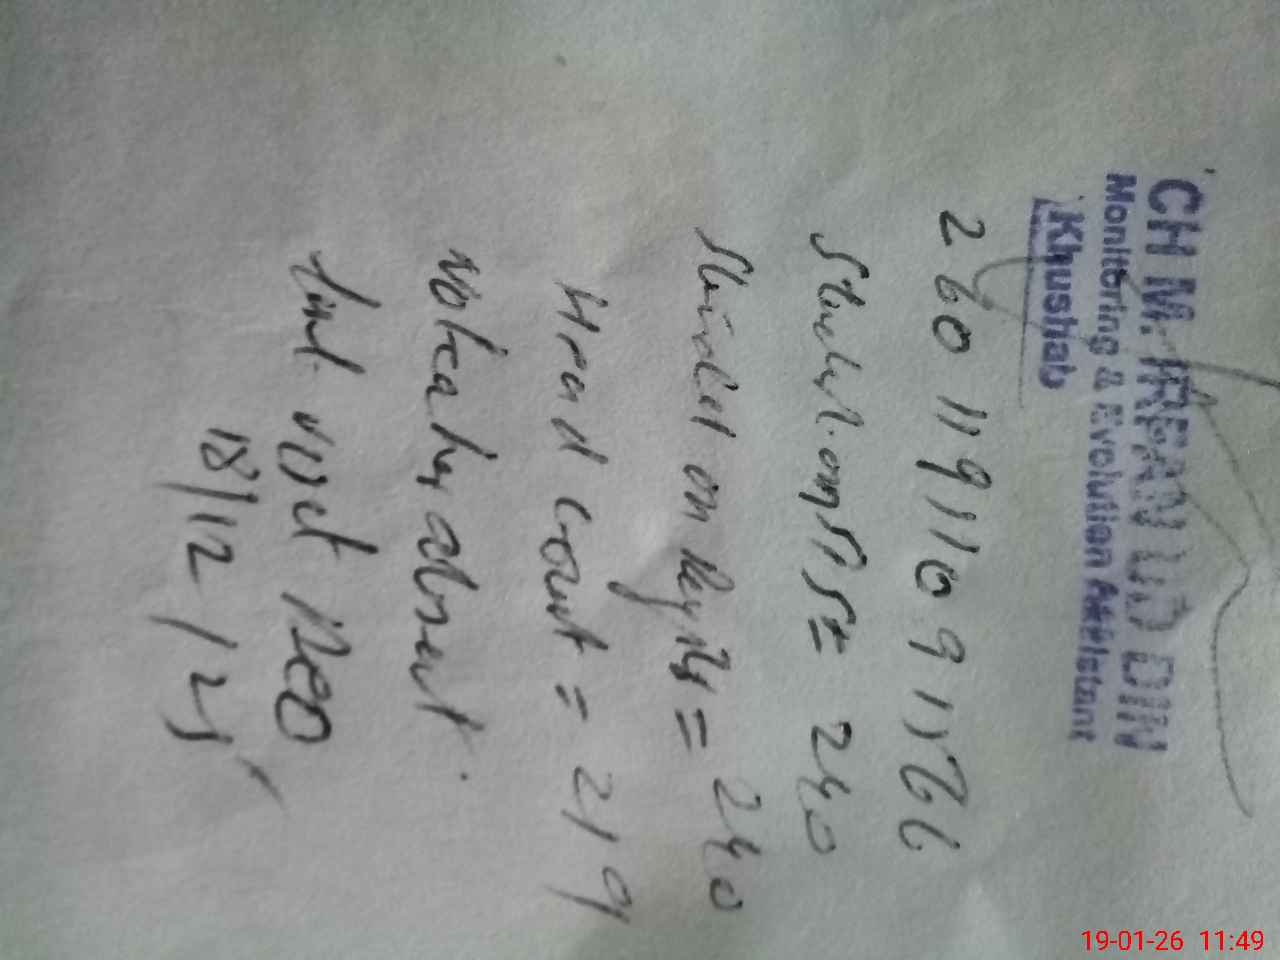 CH M. IRFAN UD DIN
Monitoring & Evolution Assistant
Khushab
Student on SIS = 240
Student on Register = 240
Head count = 219
No teacher absent.
Last visit DEO
18/12/25
19-01-26 11:49